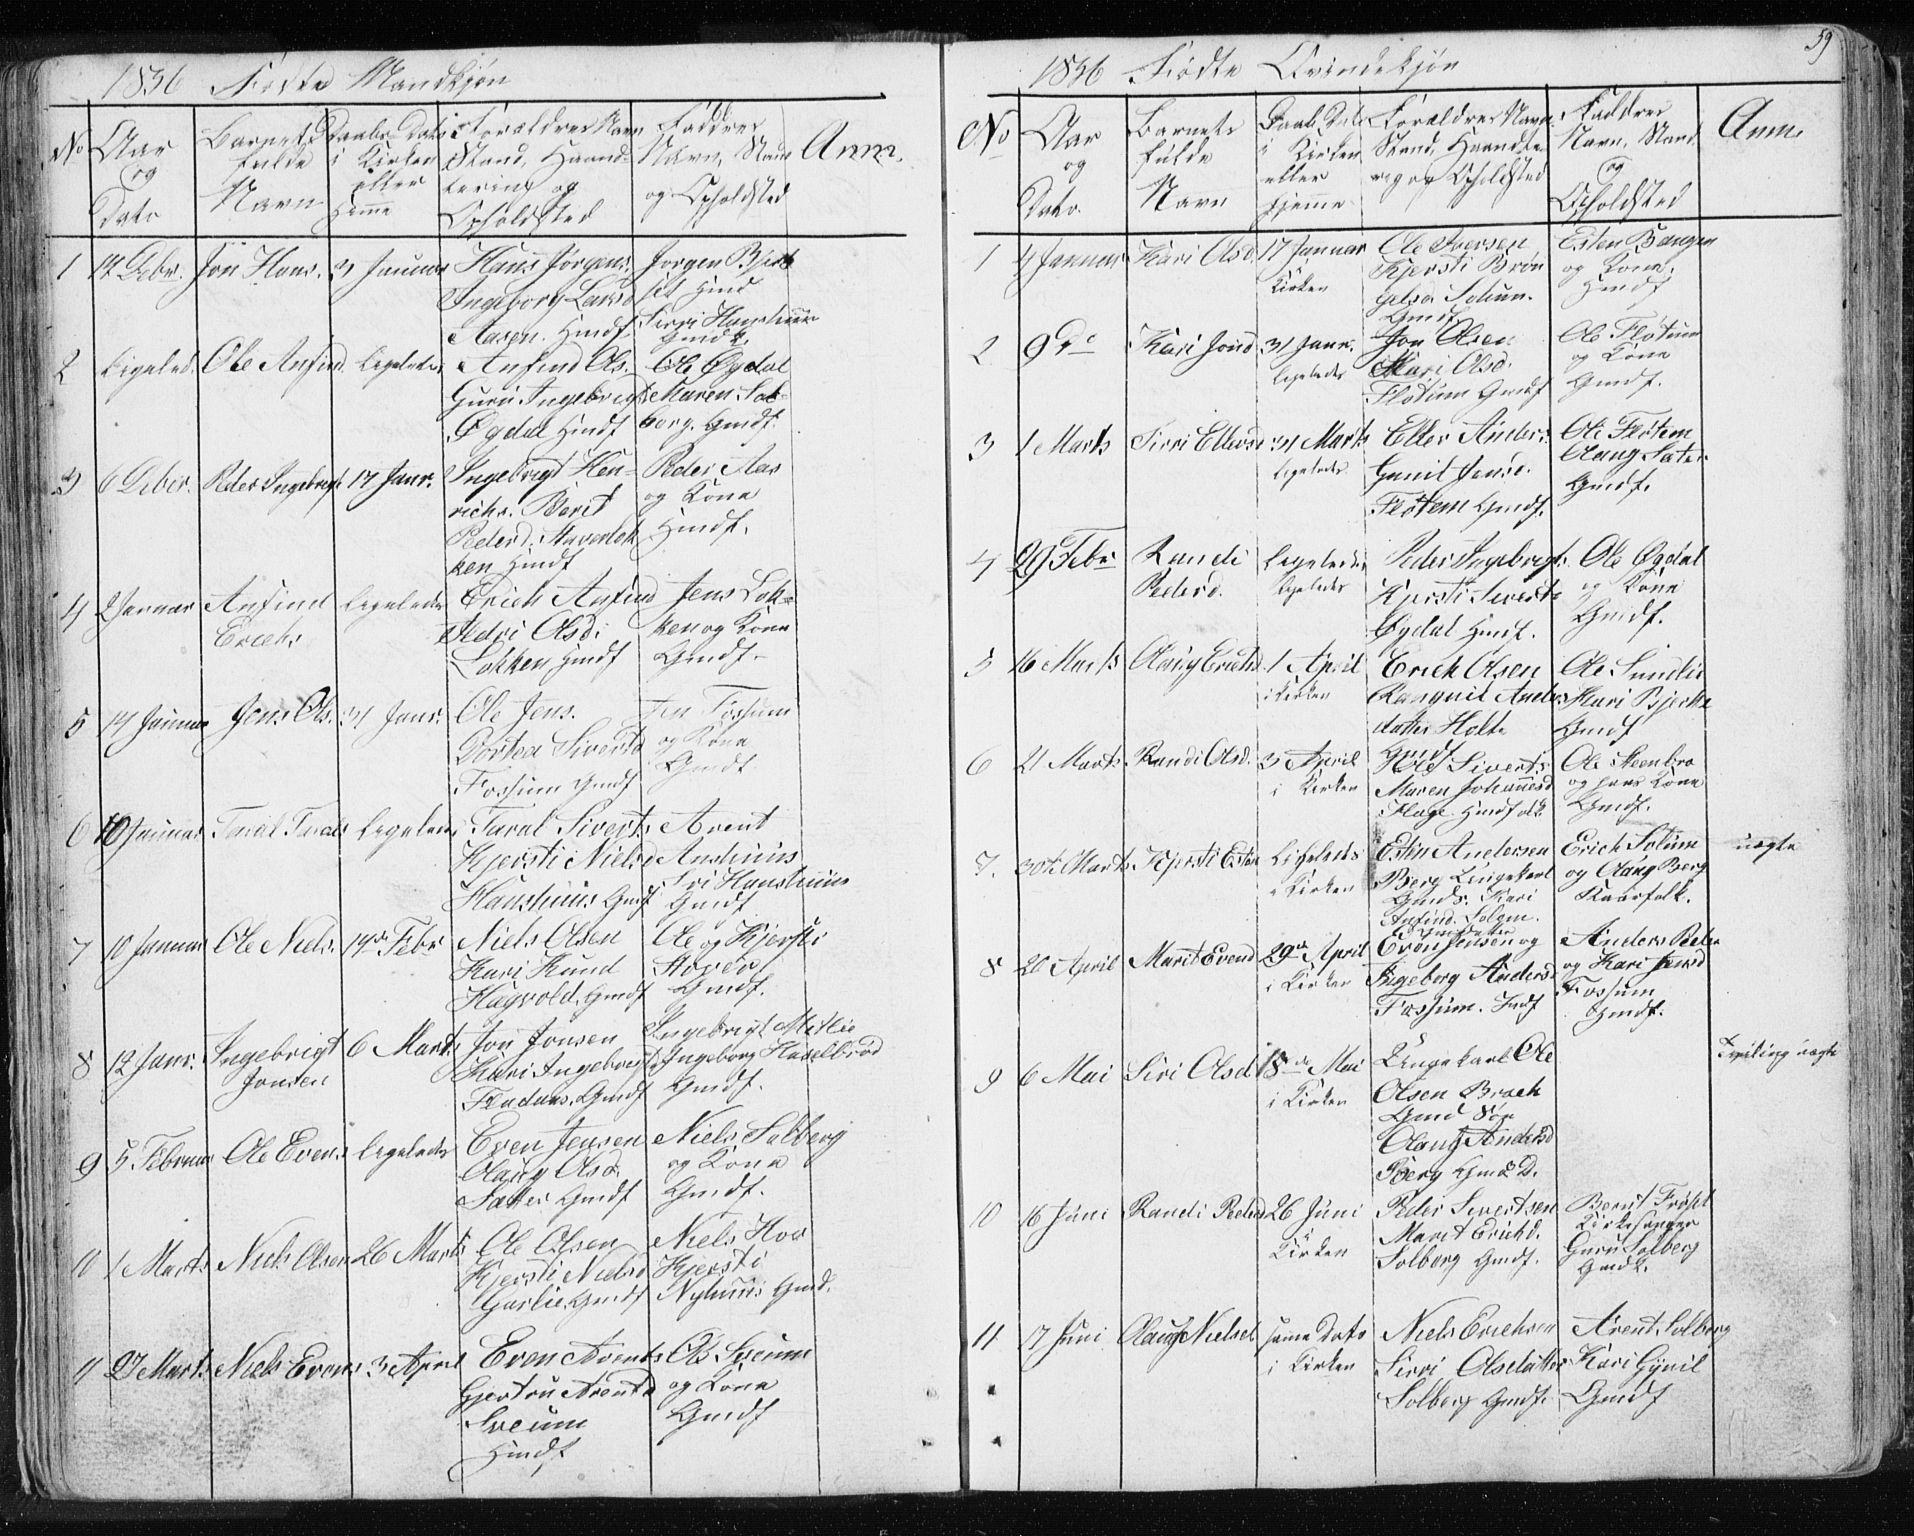 1836 Födte Mandkjön
No
Aar
og
Dato
Barnets
fulde
Navn
Daabs-Dato
i Kirken
eller
Hjemme
Forældres Navn
Stand, Haand-
tering og
Opholdsted
Faddres
Navn, Stand
og Opholdsted
Anm.
1 12 Debr. Jon Hans. 31 Januar
Hans Jörgens.
Ingeborg Larsd
Aasen. Hmdf
Jorgen Bjerk
set Hmd
Sirri Haushuus
Gmdk.
2 Ligeled. Ole Anfind. Ligeledes
Anfind Ols.
Guru Ingebrigts
Øydal Hmdf
Ole Øydal
Maren Sol-
berg. Gmdf.
3 6 Debr. Peder Ingebrigt 17 Janr.
Ingebrigt Hen-
richs. Berit
Pedersd. Staverlök
ken Hmdf
Peder Aas
og Kone
Hmdf.
4 2 Januar Anfind
Erichs Ligeledes
Erich Anfind
Sedri Olsd.
Løkken Hmdf
Jens Løk-
ken og Kone
Gmdf.
5 14 Januar Jens Ols. 31 Janr.
Ole Jens.
Dortea Sivertsd
Fossum Gmdf
Jens Fossum
og Kone
Gmdf
6 10 Januar Taral Tarals Ligeledes
Taral Siverts.
Kjersti Nielsd
Haushuus Gmdf
Arent
Aushuus
Siri Haushuus
Gmdf
7 10 Januar Ole Niels. 14de Febr
Niels Olsen
Kari Knud
Hagvold. Gmdf
Ole og Kjersti
Hover
Gmdf.
8 12 Janr. Ingebrigt
Jonsen 6 Marts
Jon Jonsen
Kari Ingebrigts
Gmdf
Ingebrigt Mitlie
Ingeborg Havelbröd
Gmdf.
9 5 Februar Ole Evens. Ligeledes
Even Jensen
Olaug Olsd.
Sæter Gmdf
Niels Solberg
og Kone
Gmdf.
10 1 Marts Niels Olsen 26 Marts
Ole Olsen
Kjersti Nielsd
Garlie Gmdf
Niels Hov
Kjersti
Nyhuus Gmd.
11 27 Marts Niels Evens 3 April
Even Arents
Gjertru Arentsd
Soeum
Hmdf
Ols Soeum
og Kone
Gmdf
59
1836 Födte Qvindekjön
No
Aar
og
Dato.
Barnets
fulde
Navn
Daabs Dato
i Kirken
eller
Hjemme
Forældres Navn
Stand, Haandte-
ring og Opholdsted
Faddres
Navn, Stand
og
Opholdsted
Anm.
1 4 Januar Kari Olsd. 17 Januar
i
Kirken
Ole Iversen
Kjersti Brön
gelsd Solum.
Gmdf.
Esten Bangen
og Kone.
Hmdf
2 9 do Kari Jonsd 31 Janr.
Ligeledes
Jon Olsen
Mari Olsd.
Flöttum Gmdf
Ole Flöttum
og Kone
Gmdf.
3 1 Marts Sirri Ellersd 31 Marts
Ligeledes
Eller Anders.
Gunil Jensd.
Fløtem Gmdf.
Ole Fløtem
Olaug Sæter
Gmdf.
4 29 Febr Randi
Pedersd. Ligeledes
Ligeledes
Peder Ingebrigts.
Kjersti Sivertsd
Øydal Hmdf.
Ole Øydal
og Kone
Gmdf.
5 16 Marts Olaug Erichsd 1 April
i Kirken
Erich Olsen
Ragnil Anders
datter Holte
Gmdf
Ole Sundlie
Mari Bjerka
Gmdf
6 21 Marts Randi Olsd. 3 April
i Kirken
Ole Siverts.
Maren Johannesd
Hage Hmdfolk
Ole Steenbro
og hans Kone
Gmdf.
7. 30te Marts Kjersti Estens Ligeleds
i Kirken
Esten Andersen
Berg Ungekarl
Gmds. Kari
Anfind. Solem.
Erich Solum
og Olaug Berg
Kaarfolk.
uægte
8 26 April Marit Evensd 29de April
i Kirken
Even Jensen og
Ingeborg Andersd
Fossum. Indf
Anders Peder
og Kari Jensd
Fossum
Gmdf.
9 6 Mai Siri Olsd 18de Mai
i Kirken
Ungekarl Ole
Olsen Brack
Gmd Søn
Olaug Andersd
Berg Gmd D.
Tvilling uægte
10 16 Juni Randi Pedersd 26 Juni
i
Kirken
Peder Sivertsen
Marit Erichd.
Solberg Gmdf.
Bernt Fröset
Kirkesanger
Guru Solberg
Gmdk.
11 17 Juni Olaug Nielsd samme Dato
i Kirken
Niels Erichsen
Sirri Olsdatter
Solberg Gmdf.
Arent Solberg
Kari Gynil
Gmdf